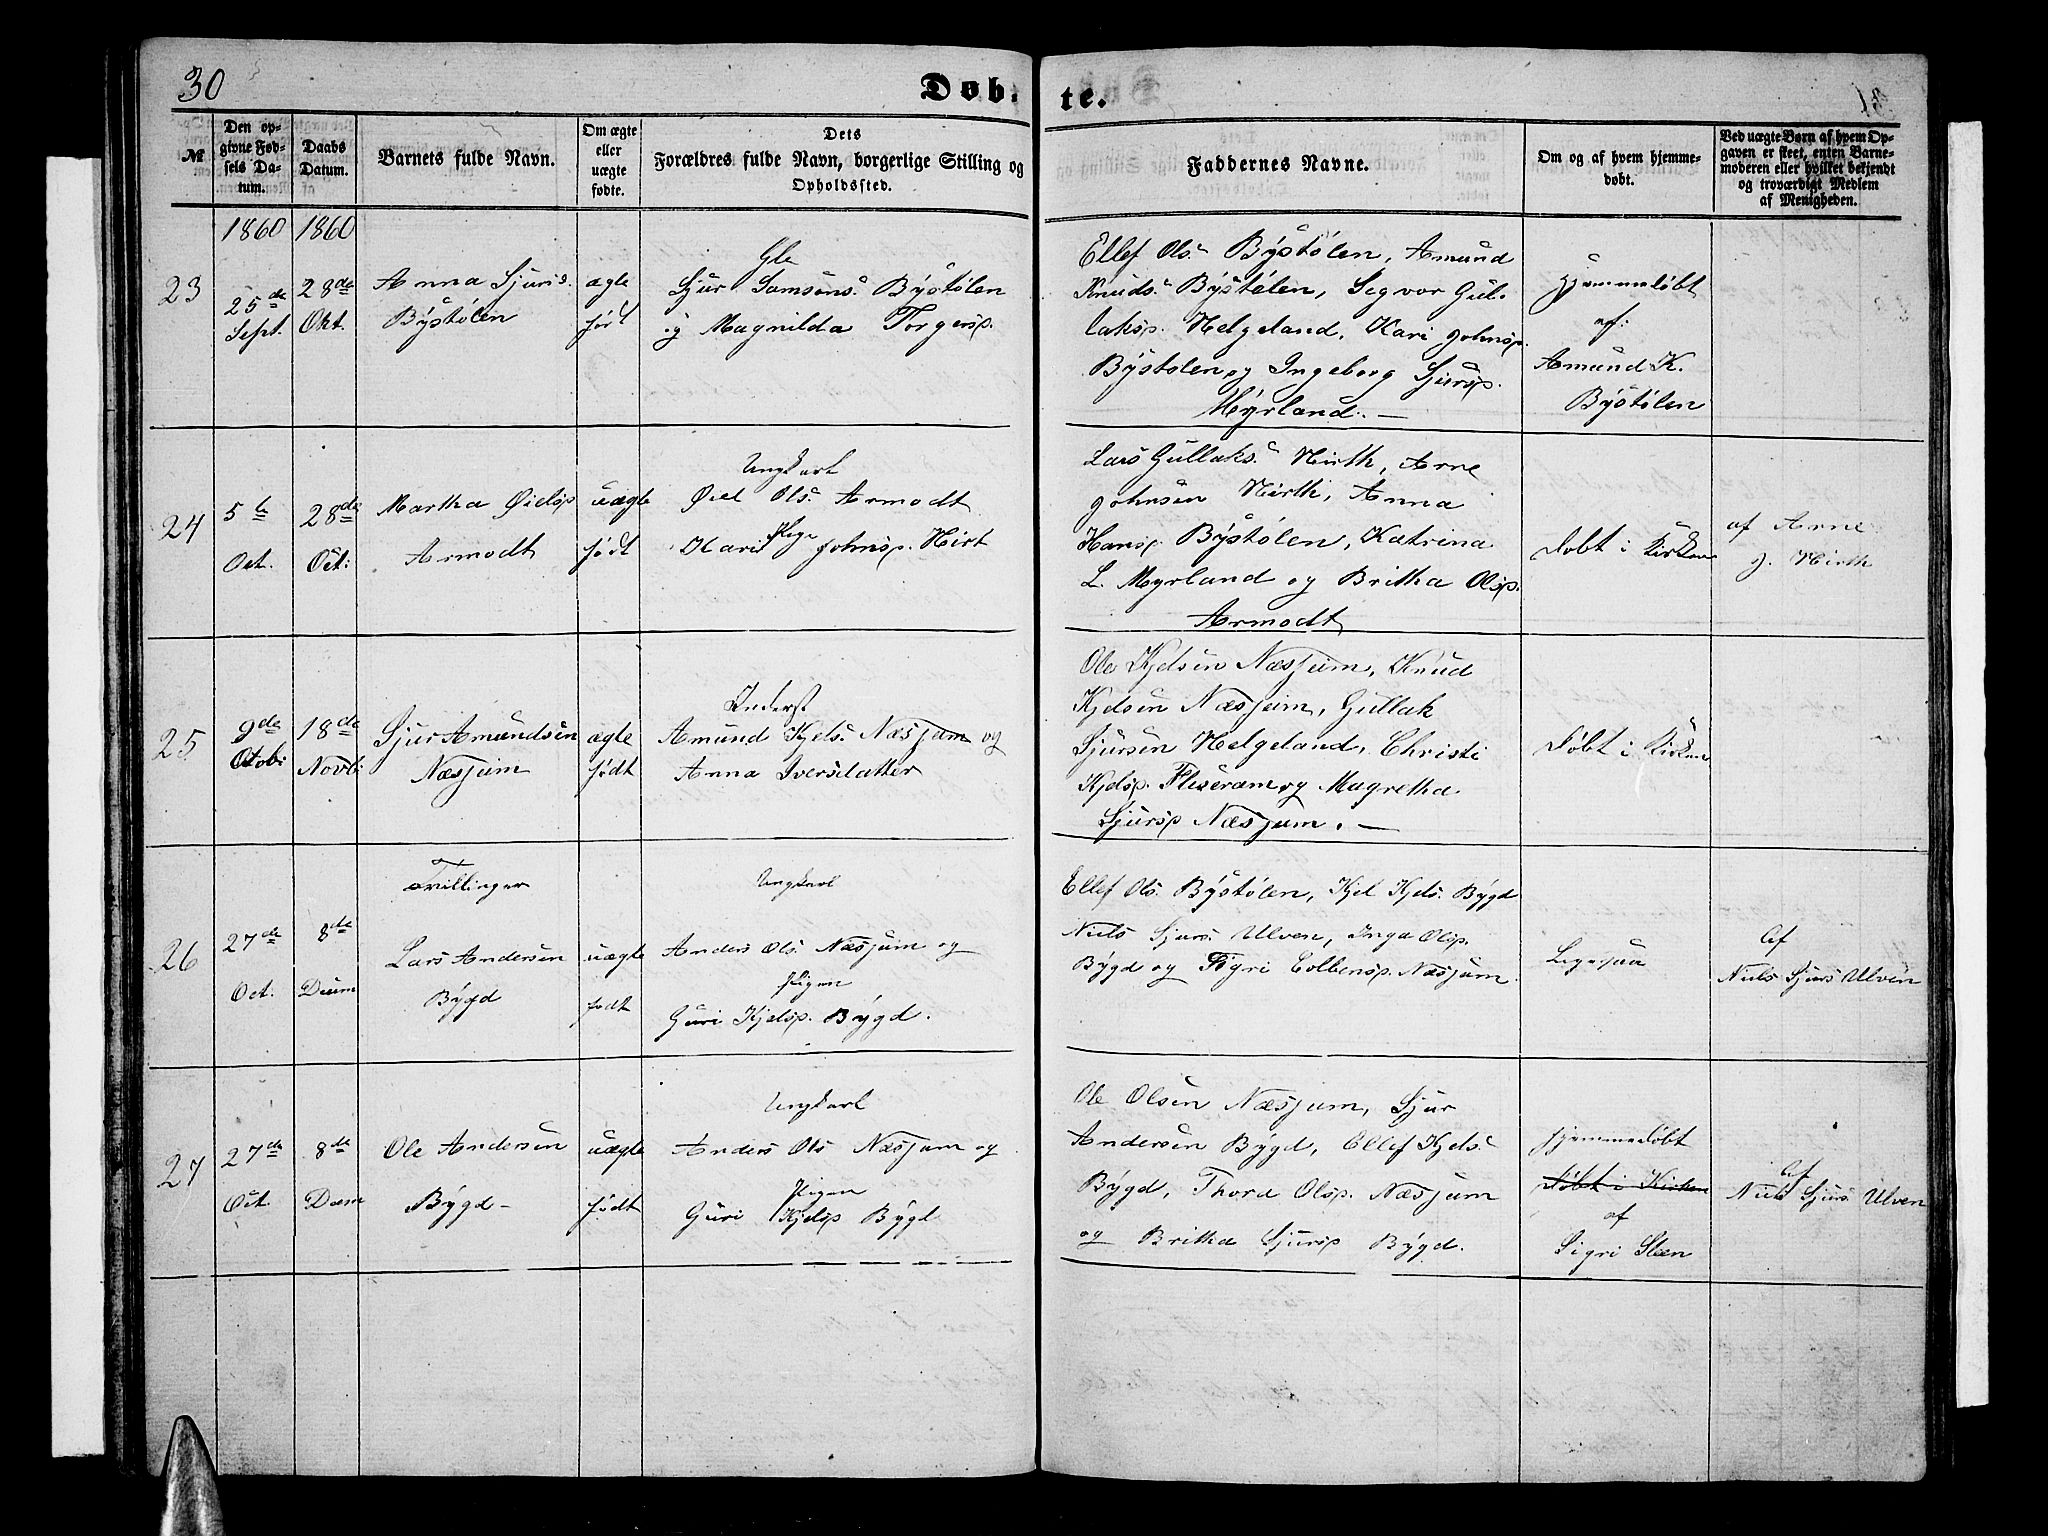 30
Døb- te.
31
№
Den op-
givne Fød-
sels Da-
tum.
Daabs
Datum.
Barnets fulde Navn.
Om ægte
eller
uægte
fødte.
Dets
Forældres fulde Navn, borgerlige Stilling og
Opholdssted.
Faddernes Navne.
Om og af hvem hjemme-
døbt.
Ved uægte Børn af hvem Op-
gaven er skeet, enten Barne-
moderen eller hvilket bekjendt
og troværdigt Medlem
af Menigheden.
1860
1860
23
25de
Sept.
28de
Okt.
Anna Sjursd.
Bystølen
ægte
født
Sjur Samsons. Bystølen
og Magnilda Torgersp.
Ellef Ols. Bystølen, Amund
Knuds. Bystølen, Segvor Gul-
laksp. Helgeland, Kari Johnsp.
Bystølen og Ingeborg Sjursp.
Myrland. —
hjemmeløbt
af:
Amund K.
Bystølen
24
5te
Oct.
28de
Oct:
Martha Øielsp
Armodt
uægte
født
Ungkarl
Ols. Armodt
Pige
Johnsp. Hirt
Lars Gullaks. Hirth, Arne
Johnsen Hirth, Anna
Hansp. Bystølen, Katrina
L. Myrland og Britha Olsp.
Armodt
Døbt i Kirken
af Arne
J. Hirth
25
9de
Octobr
18de
Novbr
Sjur Amundsen
Næsjum
ægte
født
Inderst
Amund Kjels. Næsjum og
Anna Iversdatter
Ole Kjelsen Næsjum, Knud
Kjelsen Næsjum, Gullak
Sjursen Helgeland, Christi
Kjelsp. og Magretha
Sjursp Næsjum. —
Døbt i Kirken
26
27de
Oct.
8de
Tvillinger
Lars Andersen
Bygd
uægte
født
Ungkarl
Anders Ols. Næsjum og
Pigen
Guri Kjelsp. Bygd.
Ellef Ols. Bystølen, Kjel Kjels. Bygd
Niels Sjurs. Ulven, Inga Olsp.
Bygd og Sigri Colbensp. Næsjum.
Ligesaa
Af
Niels Sjurs Ulven
27
27de
Oct.
8de
Ole Andersen
Bygd -
uægte
født
Ungkarl
Anders Ols Næsjum og
Pigen
Guri Kjelsp Bygd
Ole Olsen Næsjum, Sjur
Andersen Bygd, Ellef Kjels.
Bygd, Thora Olsp. Næsjum
og Britha Sjursp Bygd.
hjemmedøbt
Døbt i Kirken
af
Sigri Slen
Af
Niels Sjurs. Ulven